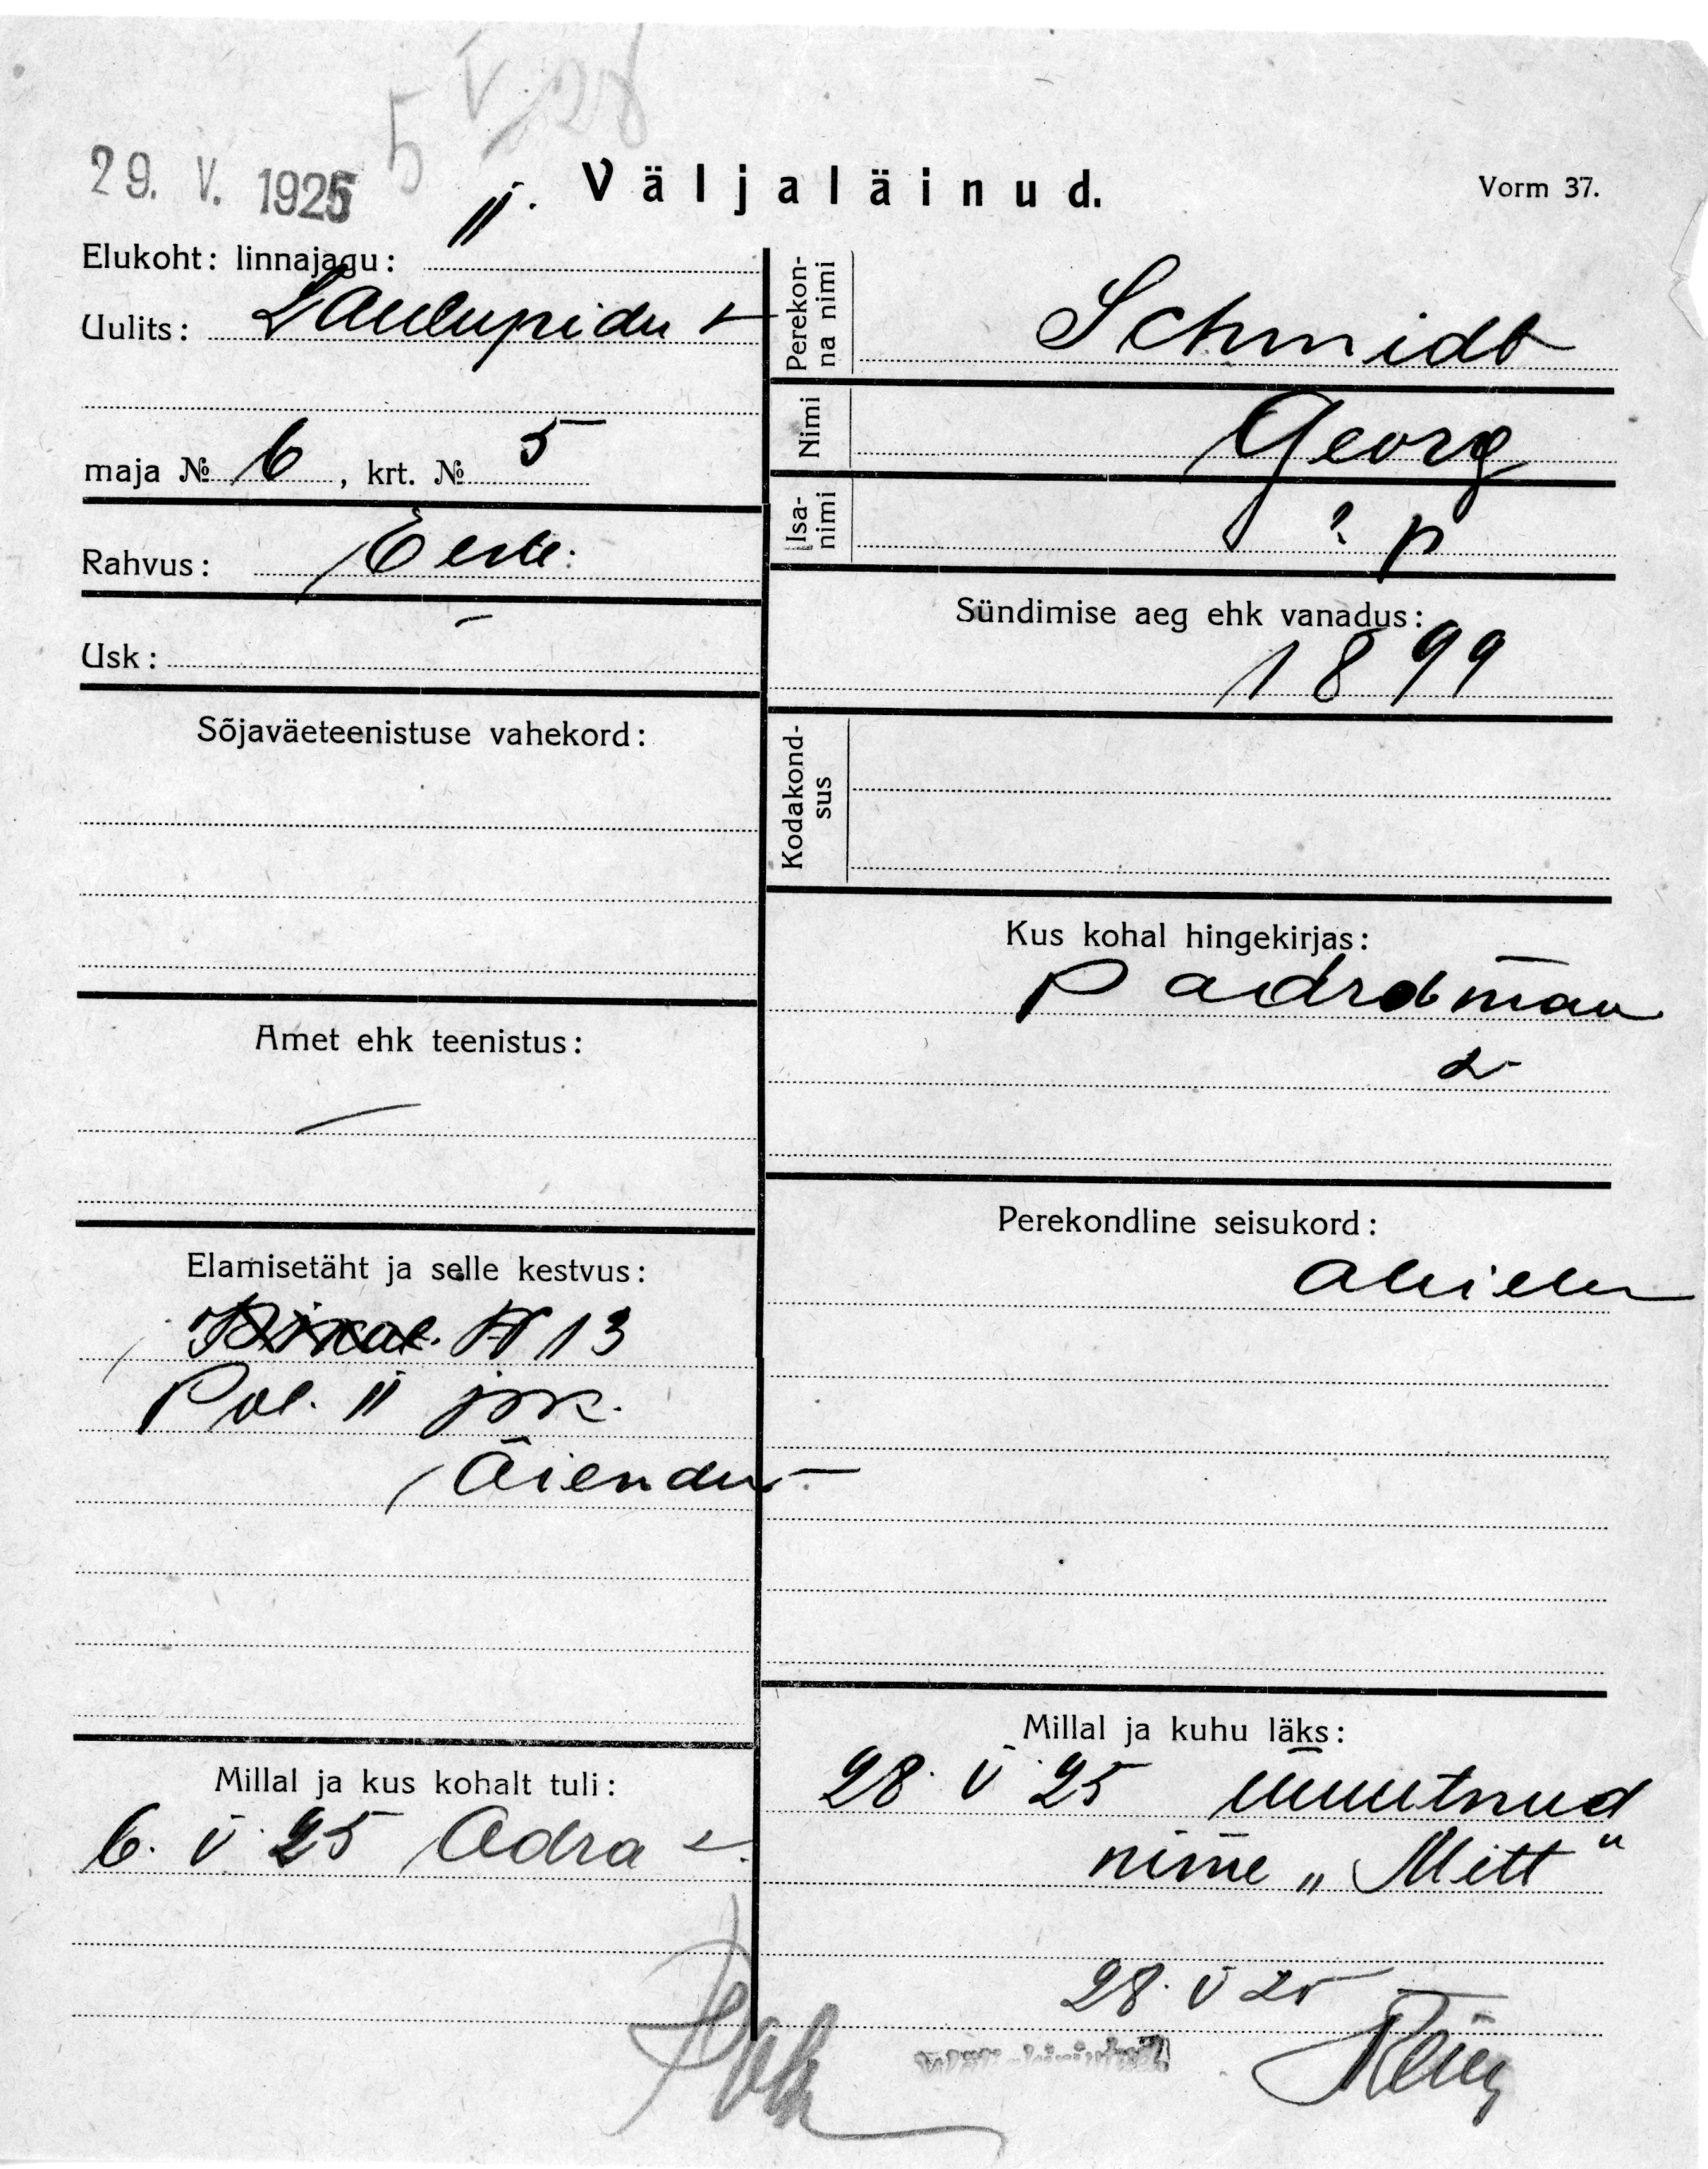 5 V 28
29. V. 1925
Väljaläinud.
Vorm 37.
Elukoht: linnajagu: II
Uulits: Laulupidu
maja № 6, krt. № 5
Rahvus: Eesti
Usk: –
Sõjaväeteenistuse vahekord:
Amet ehk teenistus:
—
Elamisetäht ja selle kestvus:
N 13
Pol. II jsk.
Äiendu
Millal ja kus kohalt tuli:
6. V 25 Adra
Perekonna nimi
Schmidt
Nimi
Georg
Isanimi
? p
Sündimise aeg ehk vanadus:
1899
Kodakondsus
Kus kohal hingekirjas:
Perekondline seisukord:
abielu
Millal ja kuhu läks:
28. V 25 muutnud
nime „Mitt“
28. V 25